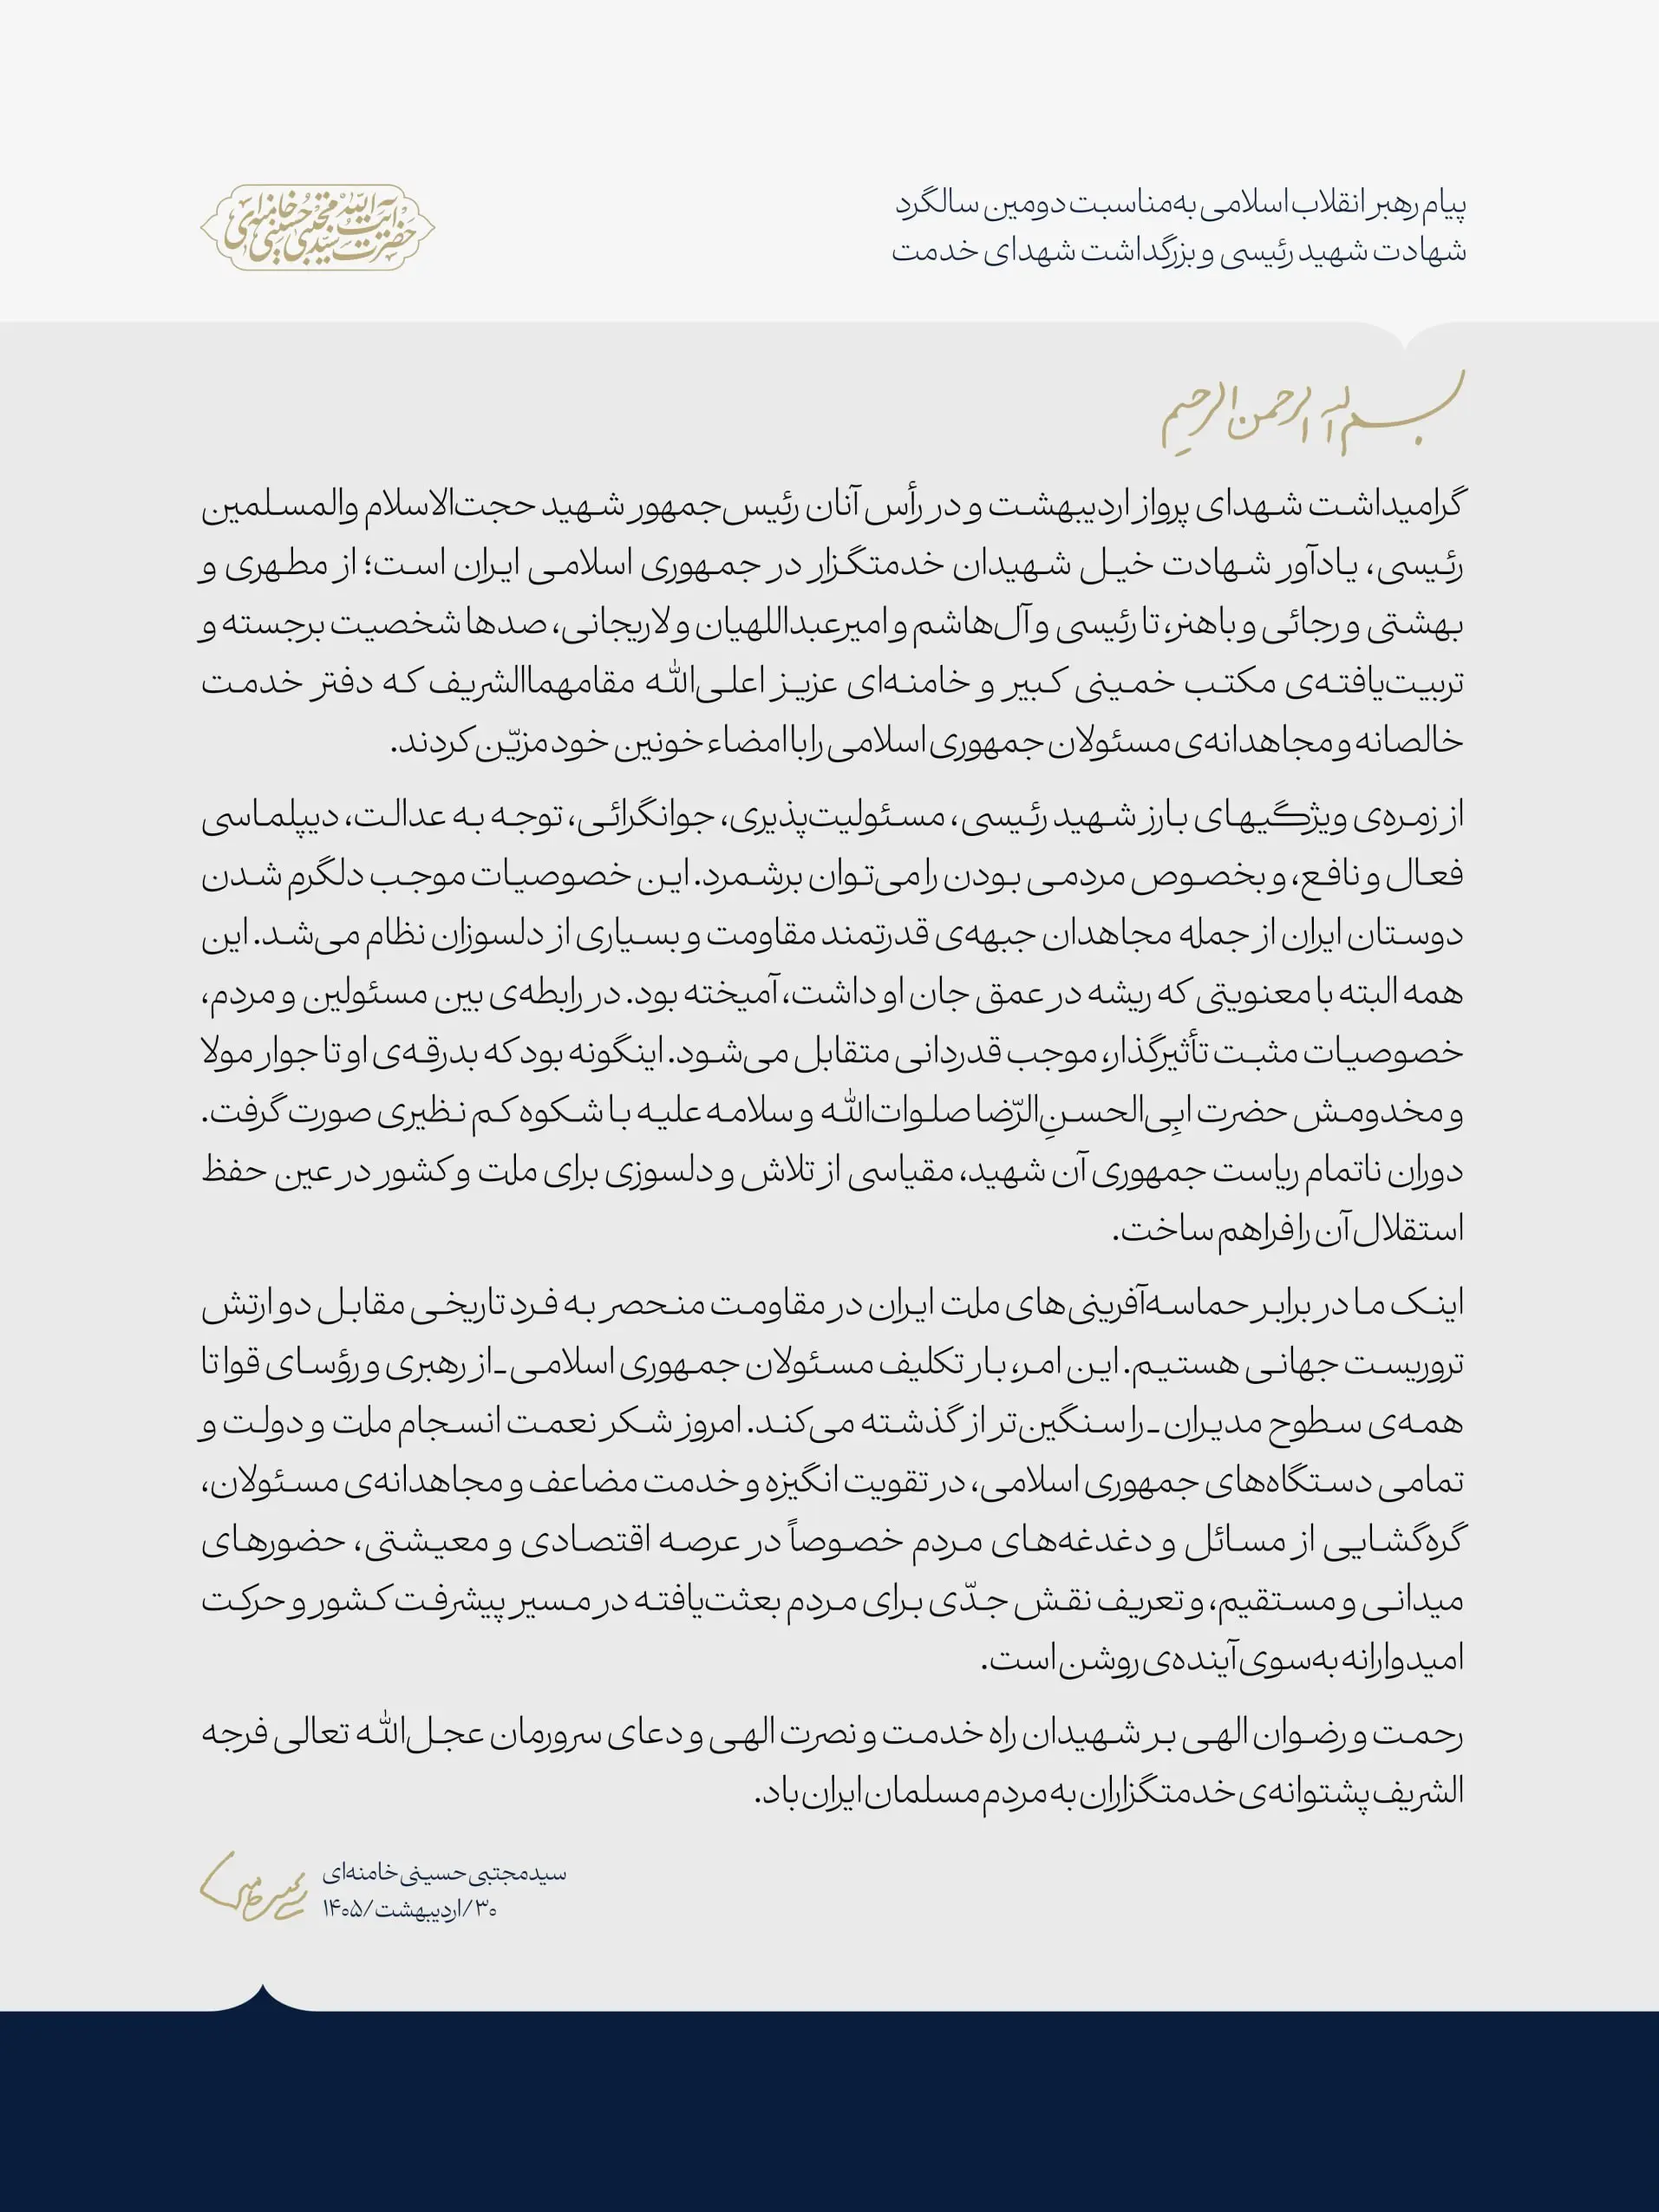 پیام رهبر انقلاب اسلامی به‌مناسبت دومین سالگرد
شهادت شهید رئیسی و بزرگداشت شهدای خدمت
حضرت آیت‌الله سیدمجتبی حسینی خامنه‌ای
بسم الله الرحمن الرحیم
گرامیداشت شهدای پرواز اردیبهشت و در رأس آنان رئیس‌جمهور شهید حجت‌الاسلام والمسلمین
رئیسی، یادآور شهادت خیل شهیدان خدمتگزار در جمهوری اسلامی ایران است؛ از مطهری و
بهشتی و رجائی و باهنر، تا رئیسی و آل‌هاشم و امیرعبداللهیان و لاریجانی، صدها شخصیت برجسته و
تربیت‌یافته‌ی مکتب خمینی کبیر و خامنه‌ای عزیز اعلی‌الله مقامهماالشریف که دفتر خدمت
خالصانه و مجاهدانه‌ی مسئولان جمهوری اسلامی را با امضاء خونین خود مزیّن کردند.
از زمره‌ی ویژگیهای بارز شهید رئیسی، مسئولیت‌پذیری، جوانگرائی، توجه به عدالت، دیپلماسی
فعال و نافع، و بخصوص مردمی بودن را می‌توان برشمرد. این خصوصیات موجب دلگرم شدن
دوستان ایران از جمله مجاهدان جبهه‌ی قدرتمند مقاومت و بسیاری از دلسوزان نظام می‌شد. این
همه البته با معنویتی که ریشه در عمق جان او داشت، آمیخته بود. در رابطه‌ی بین مسئولین و مردم،
خصوصیات مثبت تأثیرگذار، موجب قدردانی متقابل می‌شود. اینگونه بود که بدرقه‌ی او تا جوار مولا
و مخدومش حضرت ابِی‌الحسنِ‌الرّضا صلوات‌الله و سلامه علیه با شکوه کم نظیری صورت گرفت.
دوران ناتمام ریاست جمهوری آن شهید، مقیاسی از تلاش و دلسوزی برای ملت و کشور در عین حفظ
استقلال آن را فراهم ساخت.
اینک ما در برابر حماسه‌آفرینی‌های ملت ایران در مقاومت منحصر به فرد تاریخی مقابل دو ارتش
تروریست جهانی هستیم. این امر، بار تکلیف مسئولان جمهوری اسلامی ـ از رهبری و رؤسای قوا تا
همه‌ی سطوح مدیران ـ را سنگین‌تر از گذشته می‌کند. امروز شکر نعمت انسجام ملت و دولت و
تمامی دستگاه‌های جمهوری اسلامی، در تقویت انگیزه و خدمت مضاعف و مجاهدانه‌ی مسئولان،
گره‌گشایی از مسائل و دغدغه‌های مردم خصوصاً در عرصه اقتصادی و معیشتی، حضورهای
میدانی و مستقیم، و تعریف نقش جدّی برای مردم بعثت‌یافته در مسیر پیشرفت کشور و حرکت
امیدوارانه به‌سوی آینده‌ی روشن است.
رحمت و رضوان الهی بر شهیدان راه خدمت و نصرت الهی و دعای سرورمان عجل‌الله تعالی فرجه
الشریف پشتوانه‌ی خدمتگزاران به مردم مسلمان ایران باد.
سیدمجتبی حسینی خامنه‌ای
۳۰/اردیبهشت/۱۴۰۵